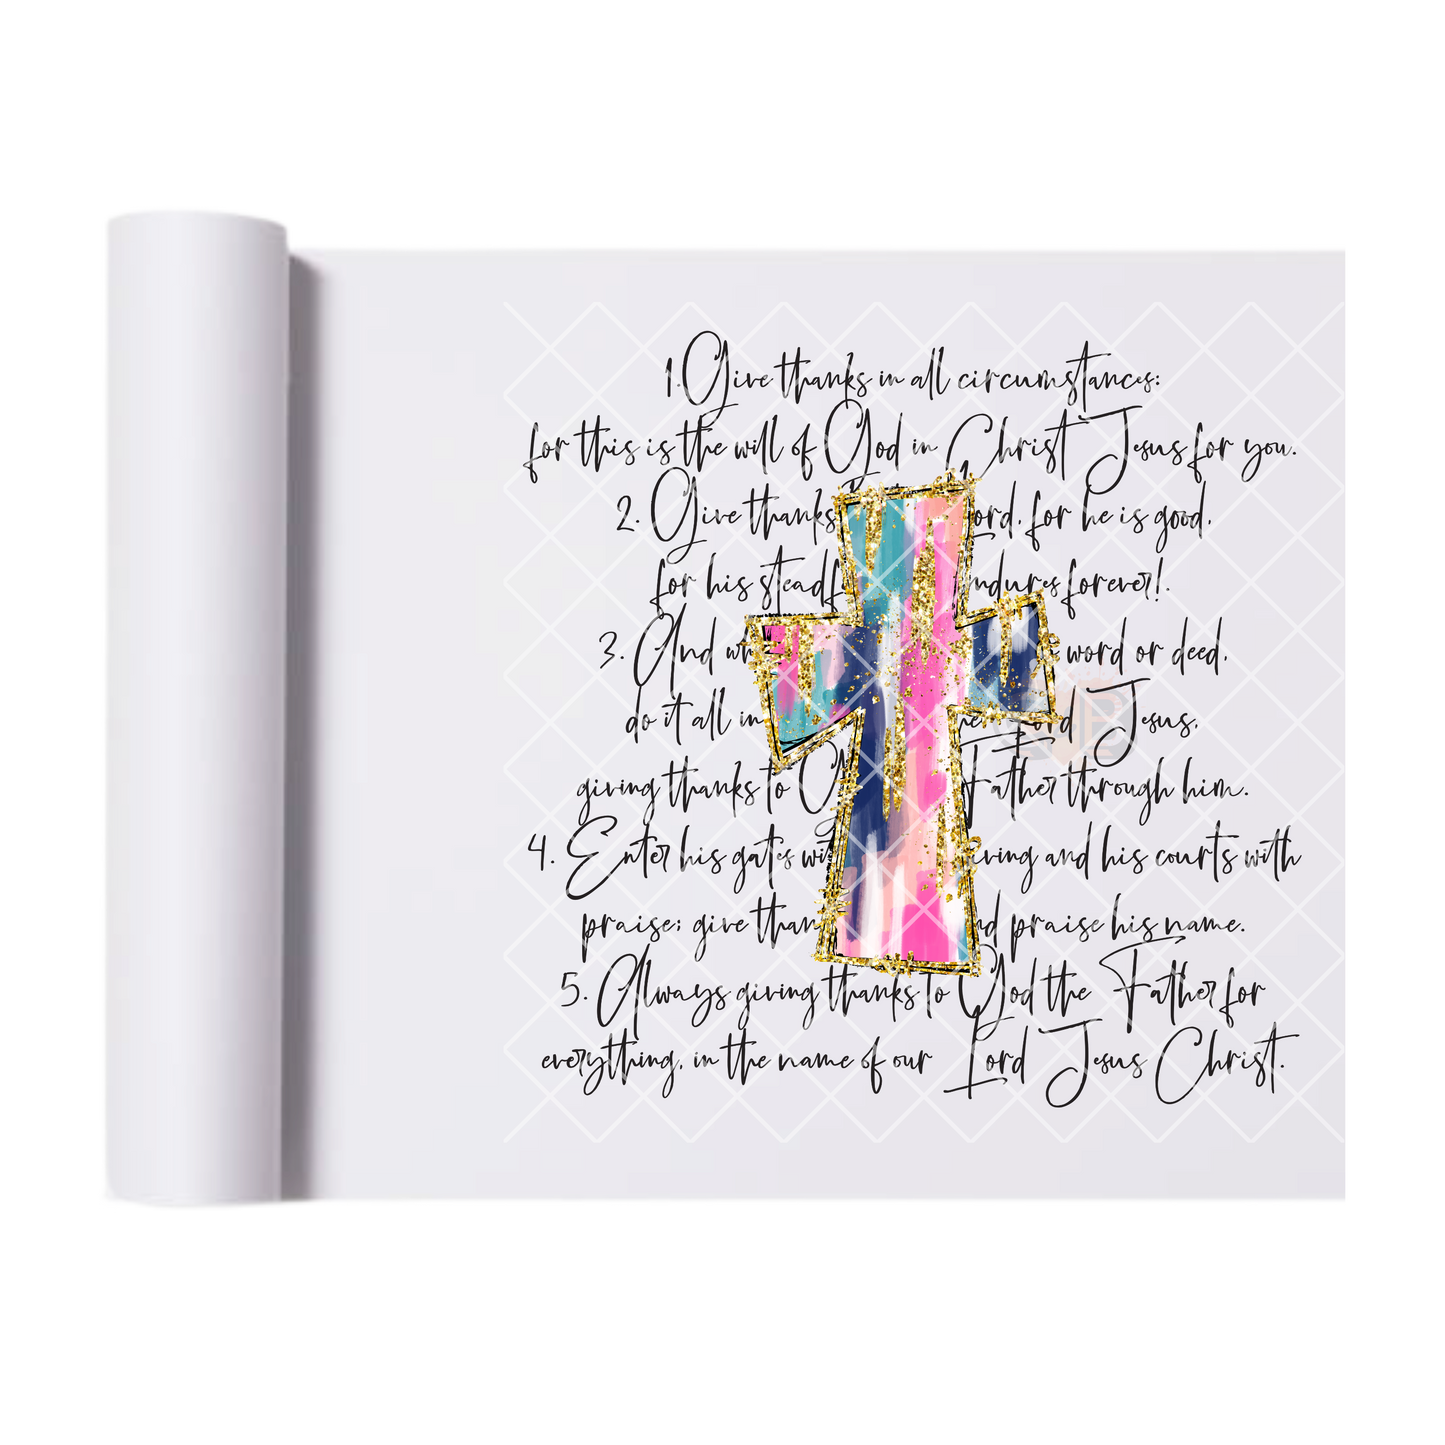 1. Give thanks in all circumstances:
for this is the will of God in Christ Jesus for you.
2. Give thanks ord, for he is good,
for his steadf ndures forever!.
3. And wh word or deed,
do it all in he Lord Jesus,
giving thanks to G Father through him.
4. Enter his gates wit iving and his courts with
praise; give than nd praise his name.
5. Always giving thanks to God the Father for
everything, in the name of our Lord Jesus Christ.